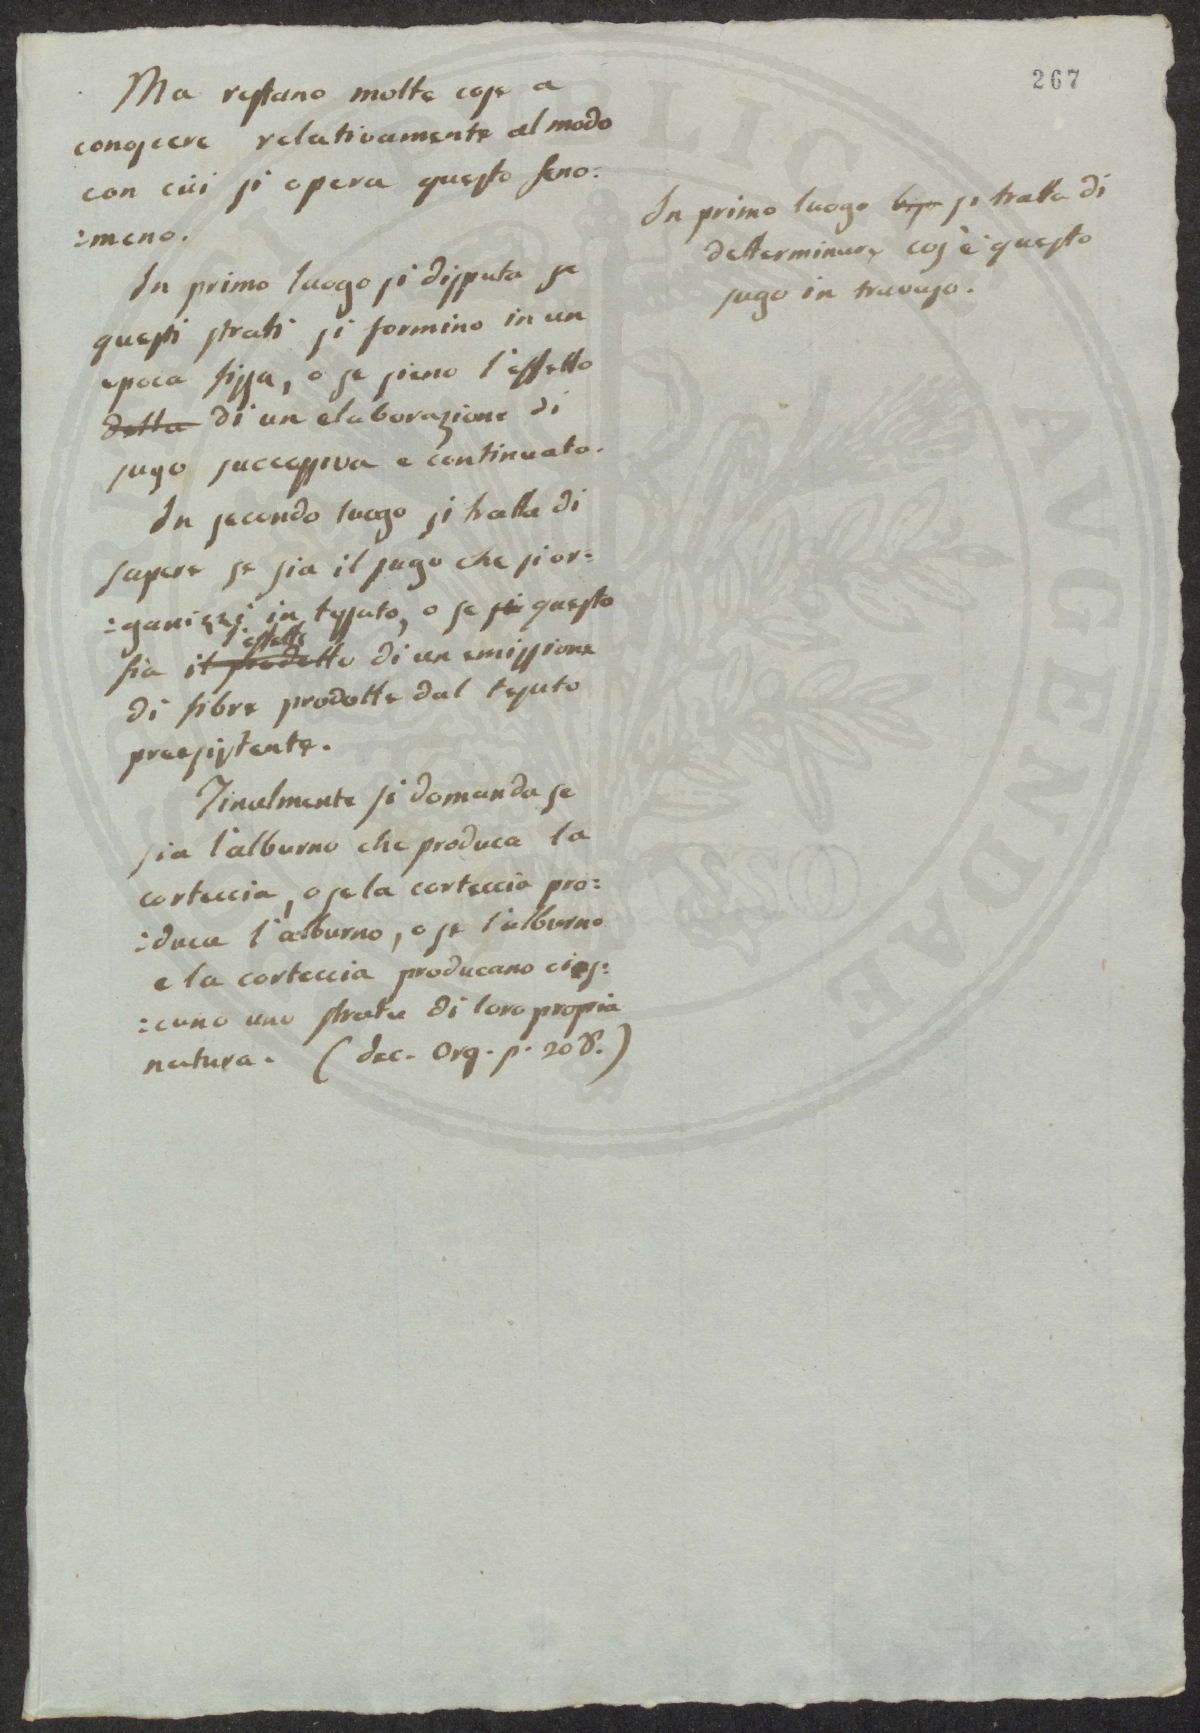 267
Ma restano molte cose a
conoscere relativamente al modo
con cui si opera questo feno:
:meno.
In primo luogo si disputa se
questi strati si formino in un
epoca fissa, o se sieno l'effetto
della di un elaborazione di
sugo successiva e continuata.
In secondo luogo si tratta di
sapere se sia il sugo che si or:
:ganizzi in tessuto, o se sia questo
l'effetto
sia il prodotto di un emissione
di fibre prodotte dal tessuto
preesistente.
Finalmente si domanda se
sia l'alburno che produca la
corteccia, o se la corteccia pro:
:duca l'alburno, o se l'alburno
e la corteccia producano cias:
:cuno uno strato di loro propria
natura. (dec. Org. p. 208.)
In primo luogo si tratta di
determinare cos'è questo
sugo in travaso.